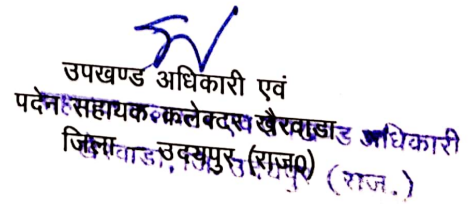 उपखण्ड अधिकारी एवं
पदेन सहायक कलेक्टर खैरवाडा
जिला – उदयपुर (राज0)
अधिकारी
(राज.)